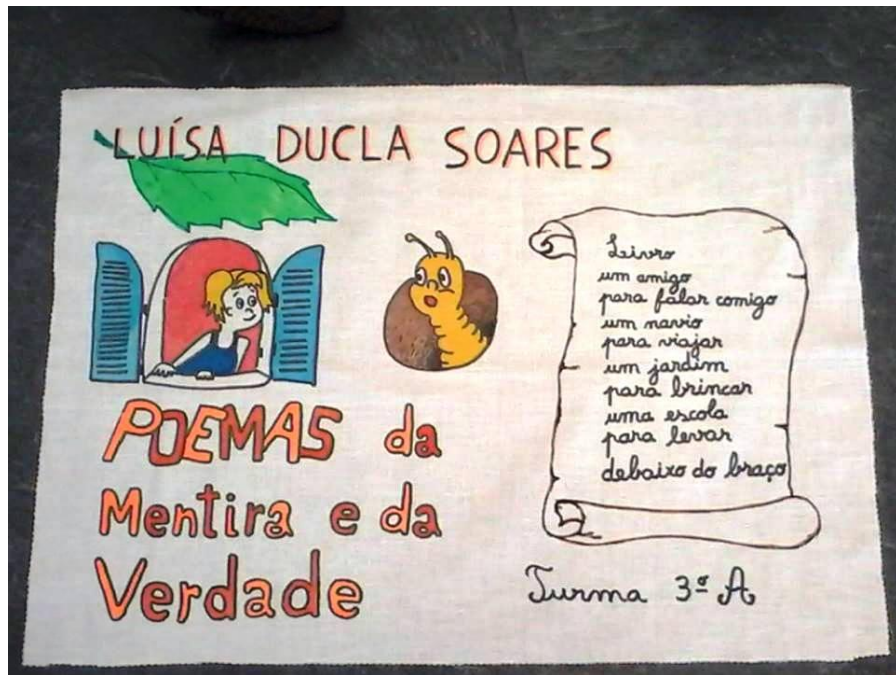 LUÍSA DUCLA SOARES
POEMAS da
Mentira e da
Verdade
Livro
um amigo
para falar comigo
um navio
para viajar
um jardim
para brincar
uma escola
para levar
debaixo do braço
Turma 3º A